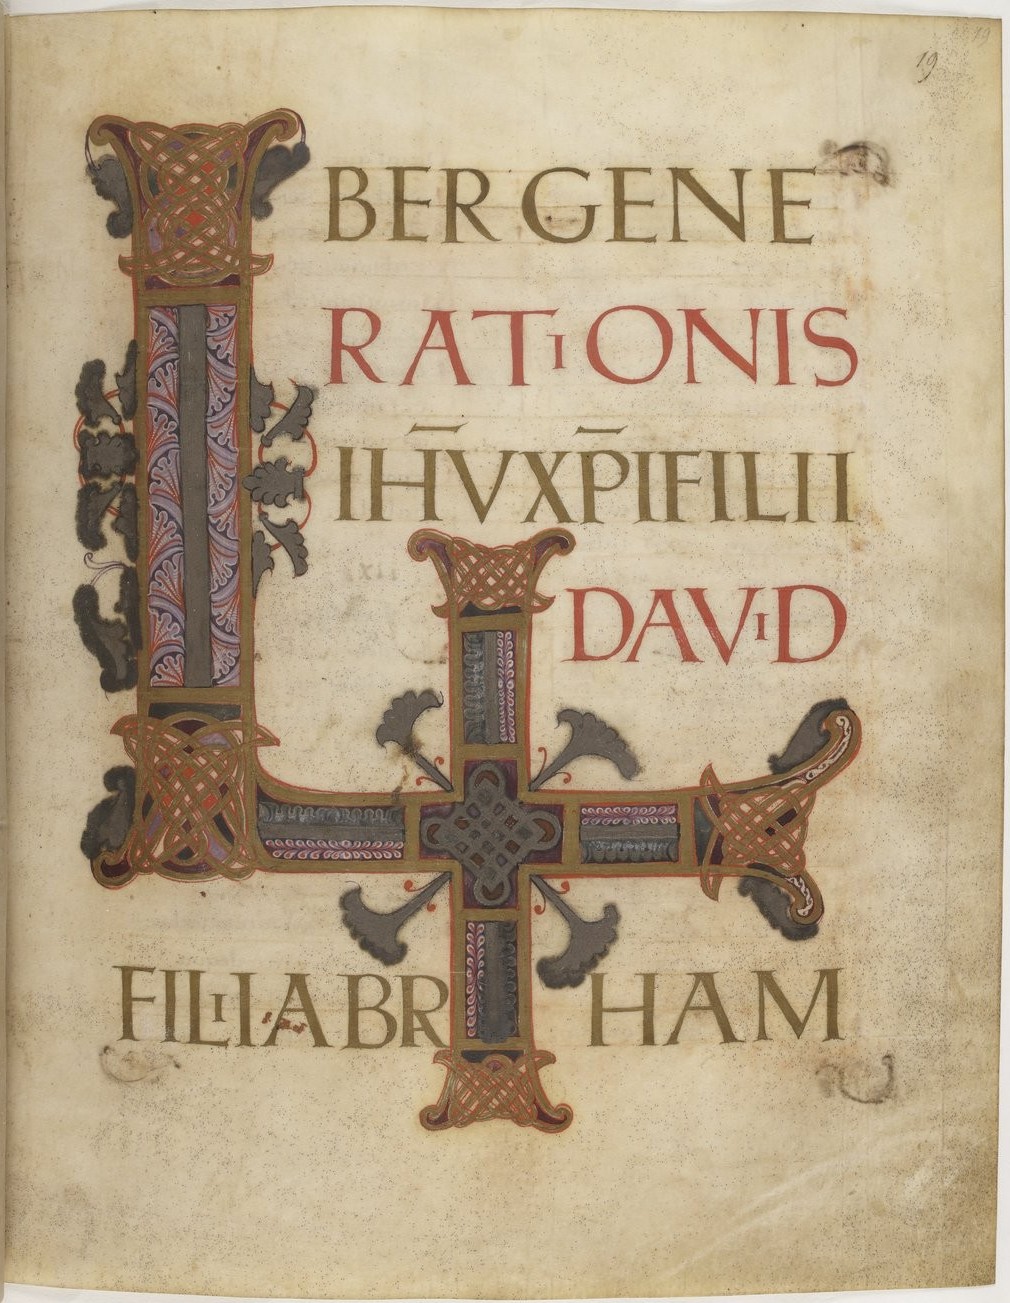 19
LIBER GENE
RATIONIS
IH̅V XP̅I FILII
DAVID
FILII ABRAHAM